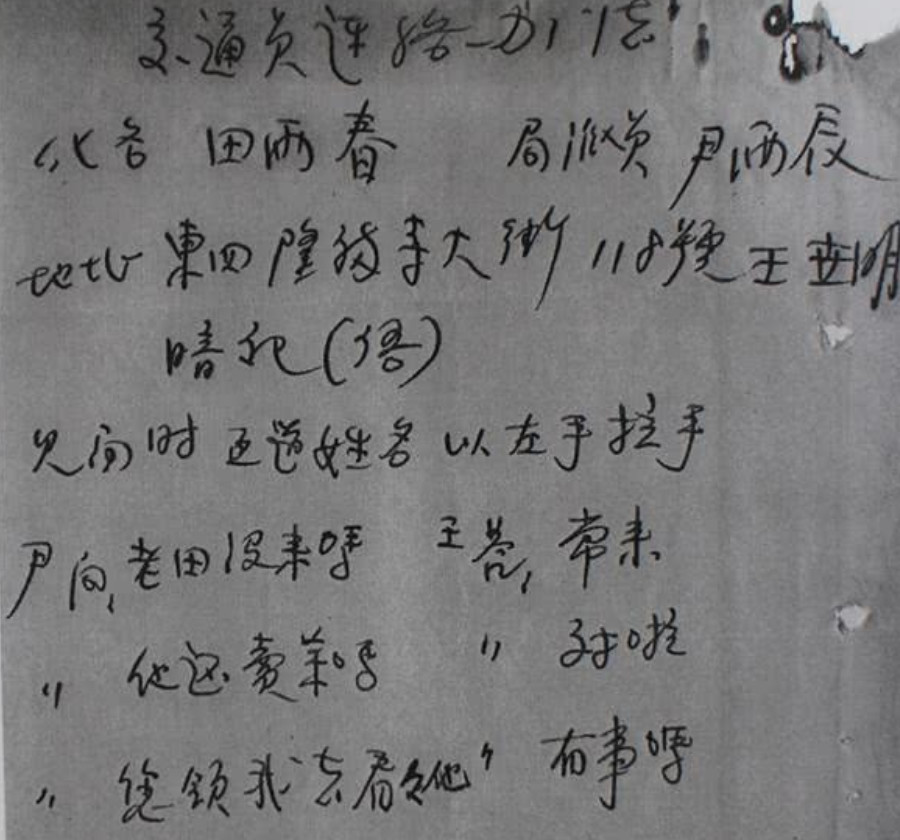 交通员连络办法
化名 田雨春 局派员 尹雨辰
地址 東四隆福寺大街118號王世明
暗记(语)
见面时 互道姓名 以左手拉手
尹问, 老田没来吗 王答, 常来
〃 他还卖菜吗 〃 对啦
〃 您领我去看看他 〃 有事吗